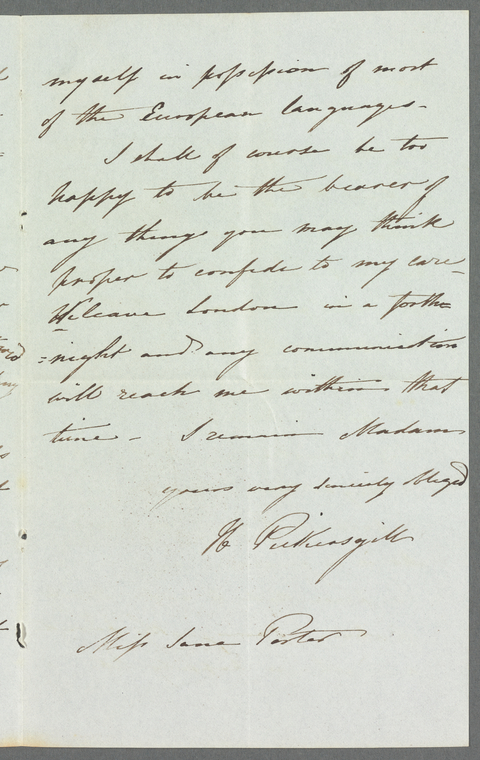 myself in possession of most
of the European languages -
I shall of course be too
happy to be the bearer of
any thing you may think
proper to confide to my care -
We leave London in a forth=
=night and any communication
will reach me within that
time - I remain Madam
yours very sincerely obliged
H Pickersgill
Miss Jane Porter